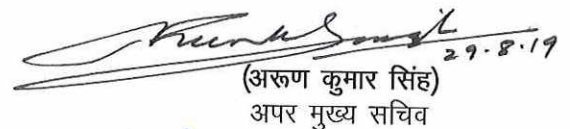 29.8.19
(अरूण कुमार सिंह)
अपर मुख्य सचिव